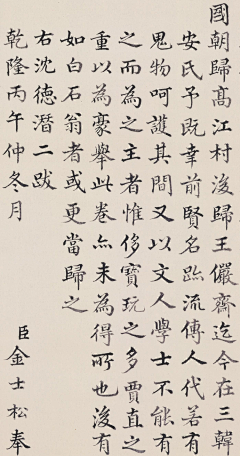 國朝歸高江村後歸王儼齋迄今在三韓
安氏予既幸前賢名跡流傳人代若有
鬼物呵護其間又以文人學士不能有
之而為之主者惟侈寶玩之多賈直之
重以為豪舉此卷亦未為得所也後有
如白石翁者或更當歸之
右沈德潛二跋
乾隆丙午仲冬月
臣金士松奉